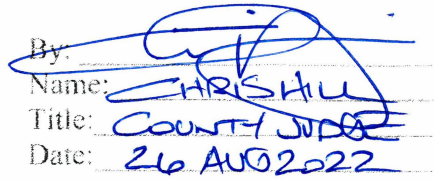 By:
Name: CHRIS HILL
Title: COUNTY JUDGE
Date: 26 AUG 2022